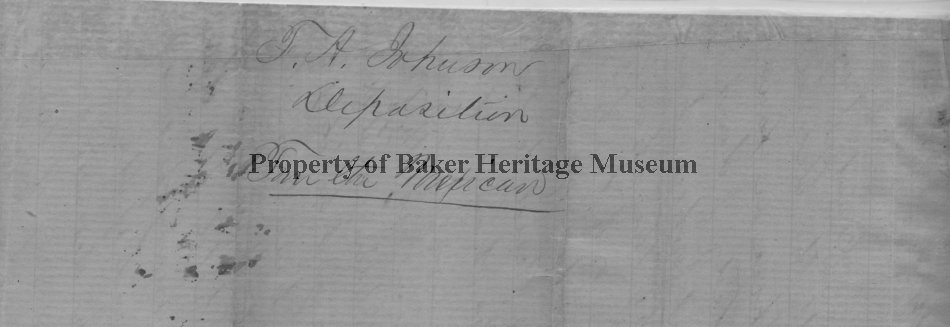 T. A. Johnson
Deposition
Property of Baker Heritage Museum
the Mexican